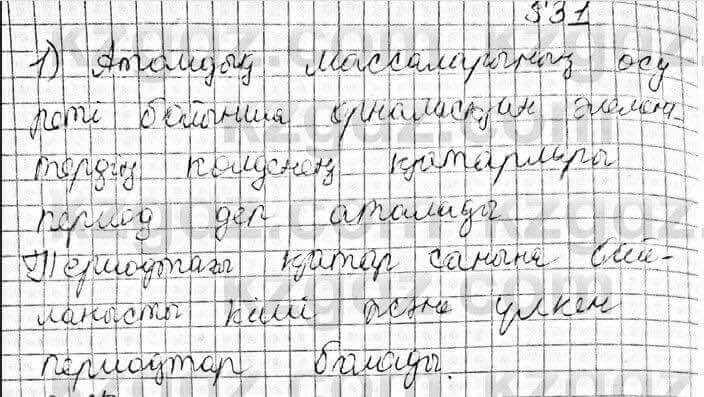 §31
1) Атомдық массаларының өсу
реті бойынша орналасқан элемен-
тердің көлденең қатарлары
период деп аталады
Периодтағы қатар санына бай-
ланысты кіші және үлкен
периодтар болады.